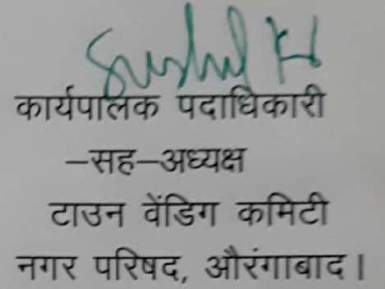 Sushil Kr
कार्यपालक पदाधिकारी
–सह–अध्यक्ष
टाउन वेंडिग कमिटी
नगर परिषद, औरंगाबाद।